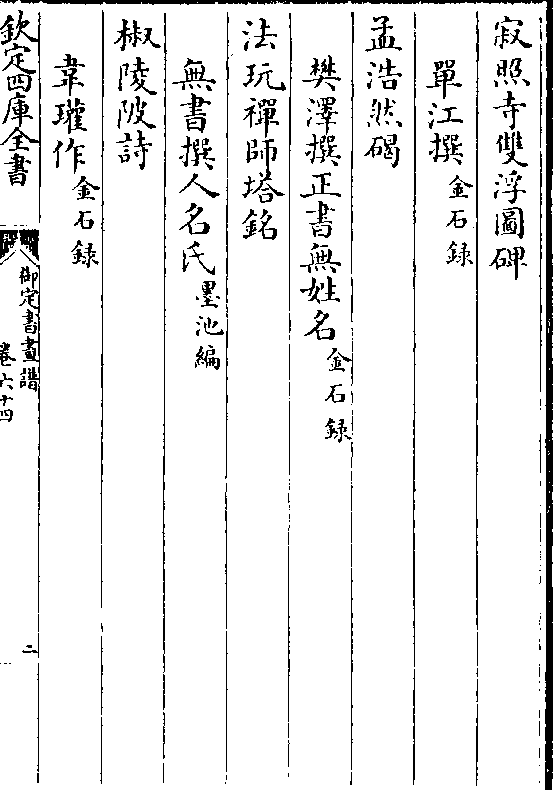 寂照寺雙浮圖碑
單江撰金石録
孟浩然碣
樊澤撰正書無姓名金石録
法玩禪師塔銘
無書撰人名氏墨池編
椒陵陂詩
韋瓘作金石録
欽定四庫全書
御定書畫譜
卷六十四
二